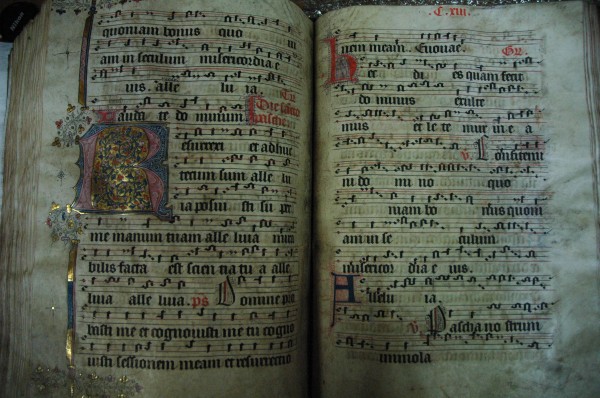 quoniam bonus quo ni
am in seculum misericordia e
ius. alle lu ia.
te do minum
Resurrexi et adhuc
tecum sum alle lu
ia posui sti su per
me manum tuam alle luia mira
bilis facta est scien tia tu a alle
luia alle luia. ps Domine pro
basti me et cognovisti me tu cogno
visti sessionem meam et resurrectio
C. xiii.
nem meam. Euouae. Gr.
Hec di es quam fecit
do minus exulte
mus et lete mur in e a
V. Confitemi
ni do mi no quo
niam bo nus quoni
am in se culum
misericor dia e ius.
Alledu ia
V. Pascha no strum
immola